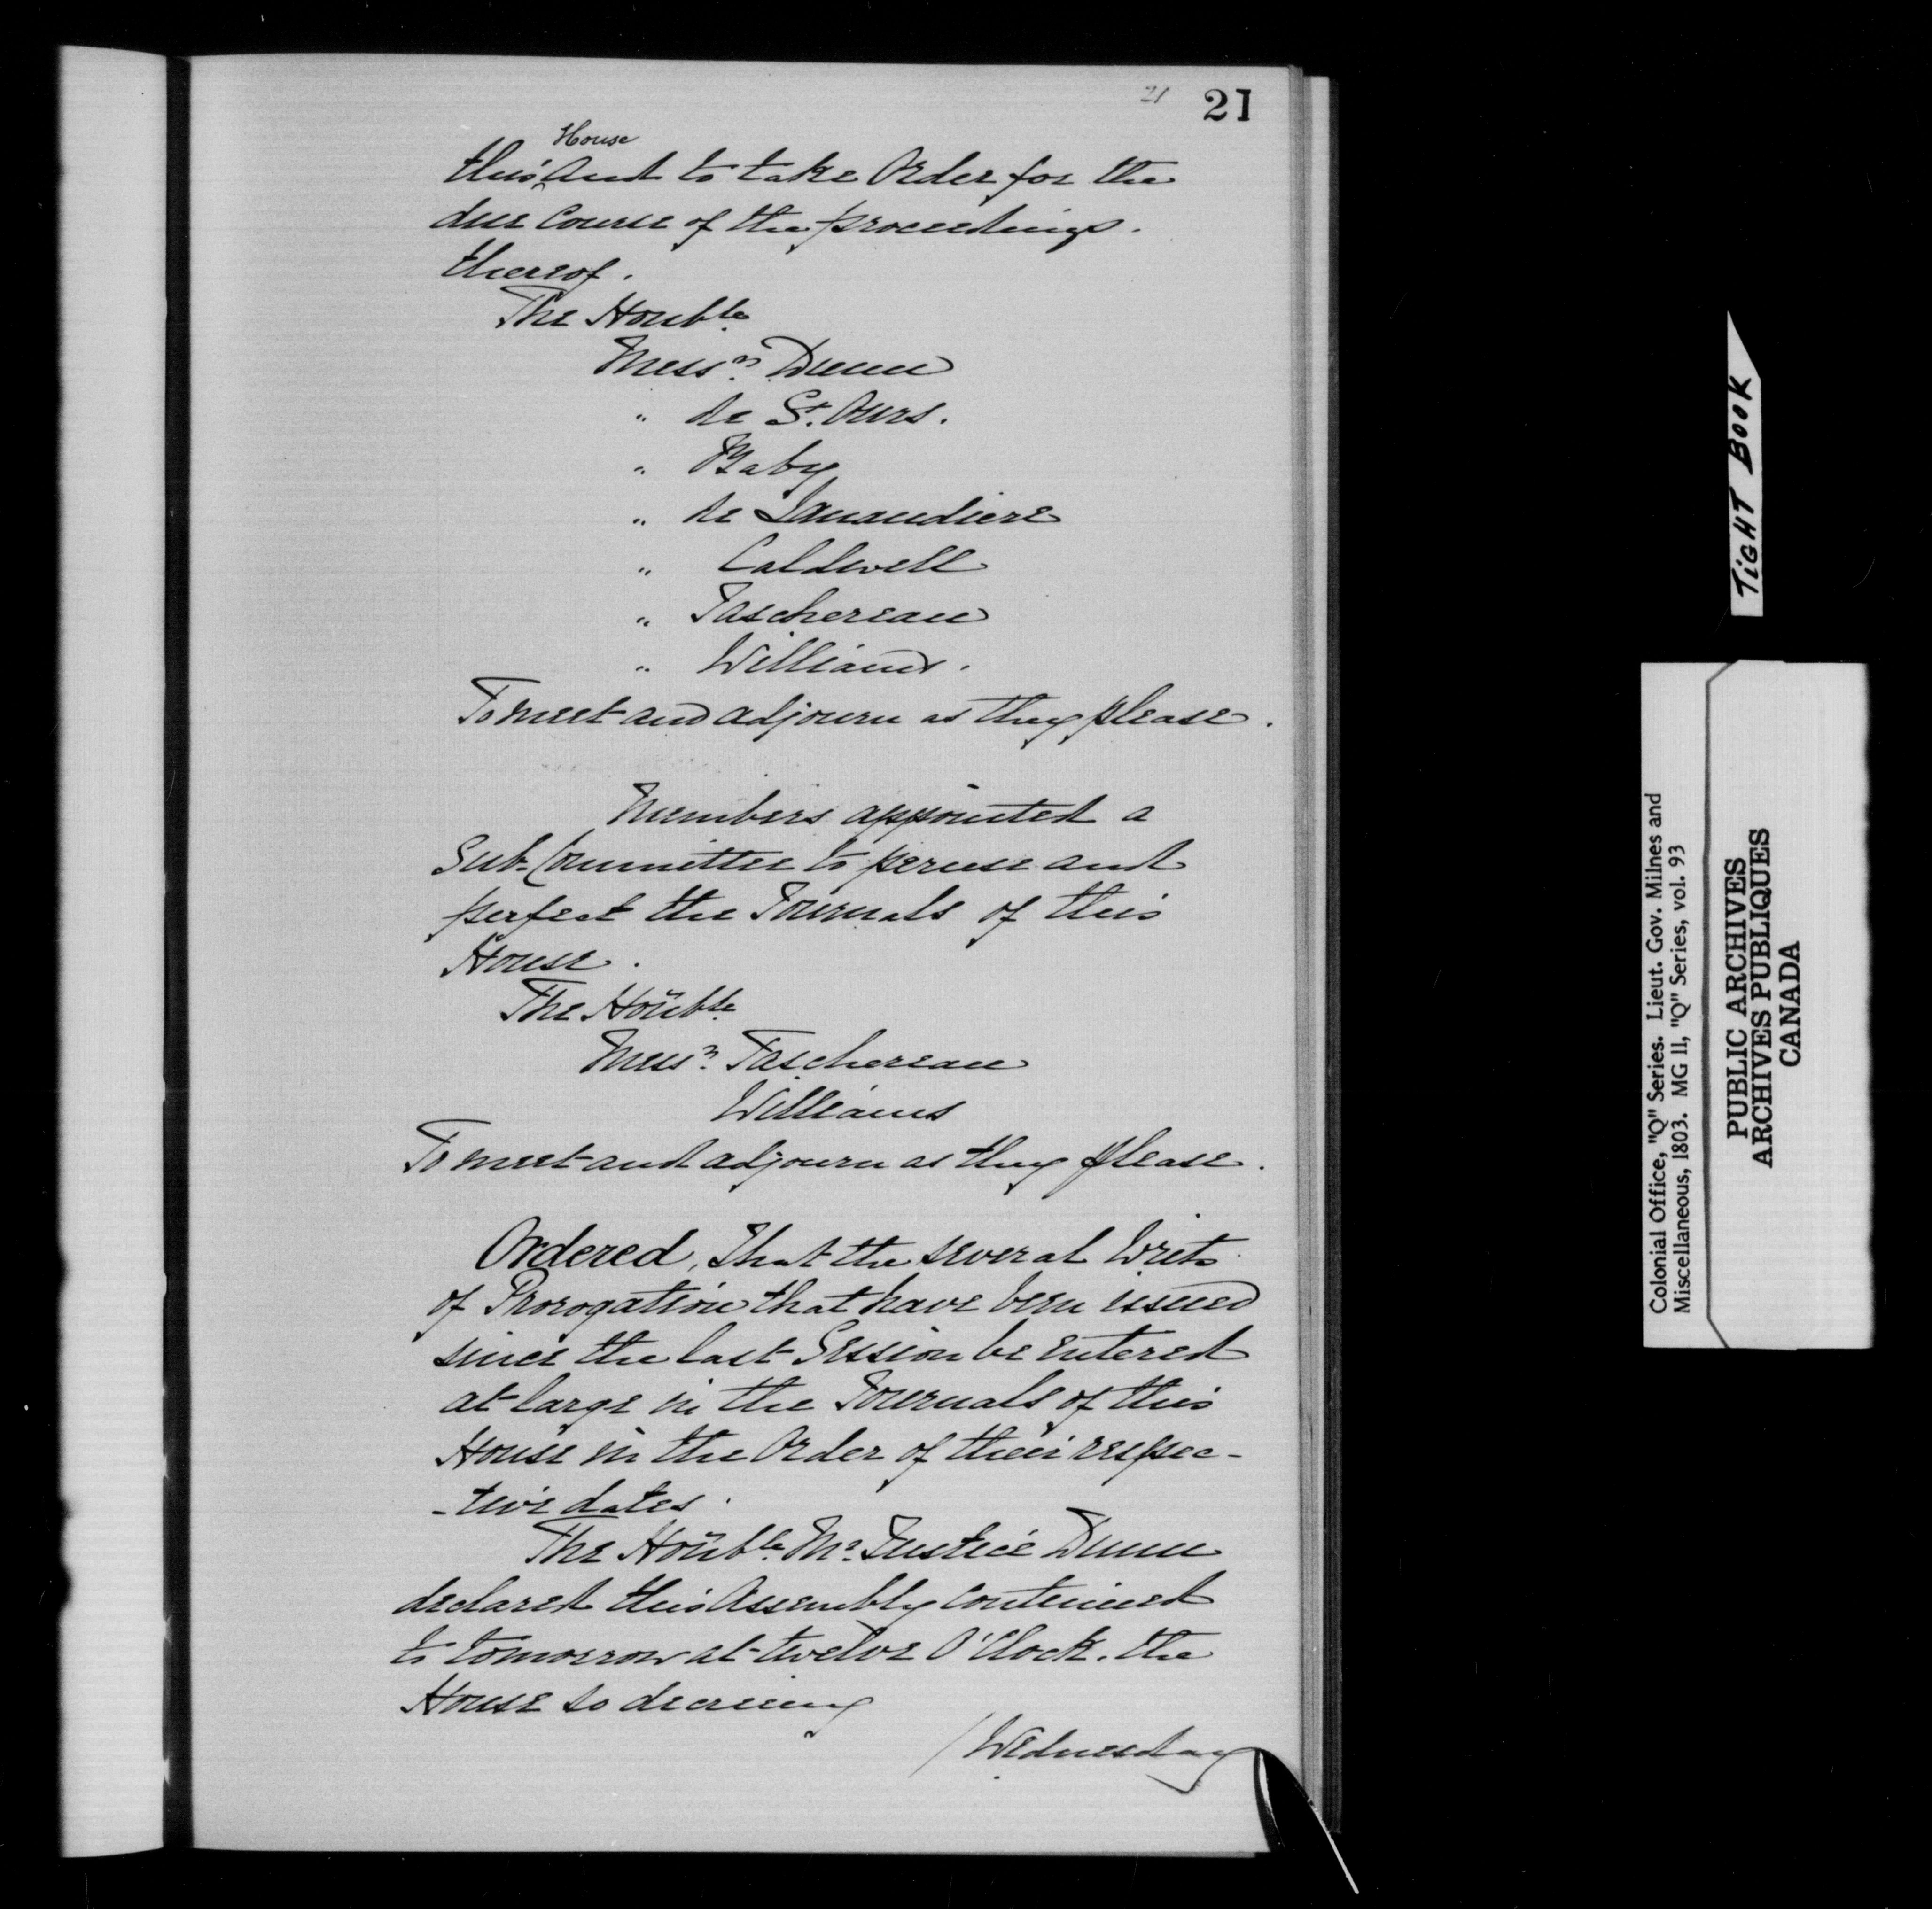 21 21
House
this ‸ and to take Order for the
due Course of the proceedings.
thereof.
The Honble
Messrs. Dunn
" de St. Ours.
" Baby
" de Lanaudiere
" Caldwell
" Taschereau
" Williams.
To meet and adjourn as they please.
Members appointed a
Sub-Committee to peruse and
perfect the Journals of this
House.
The Honble
Messrs. Taschereau
Williams
To meet and adjourn as they please.
Ordered, That the several Writs
of Prorogation that have been issued
since the last Session be entered
at large in the Journals of this
House in the Order of their respec-
-tive dates.
The Honble. Mr. Justice Dunn
declared this Assembly continued
to tomorrow at twelve O'Clock, the
House so decreeing
/Wednesday
TIGHT BOOK
Colonial Office, "Q" Series. Lieut. Gov. Milnes and
Miscellaneous, 1803. MG 11, "Q" Series, vol. 93
PUBLIC ARCHIVES
ARCHIVES PUBLIQUES
CANADA